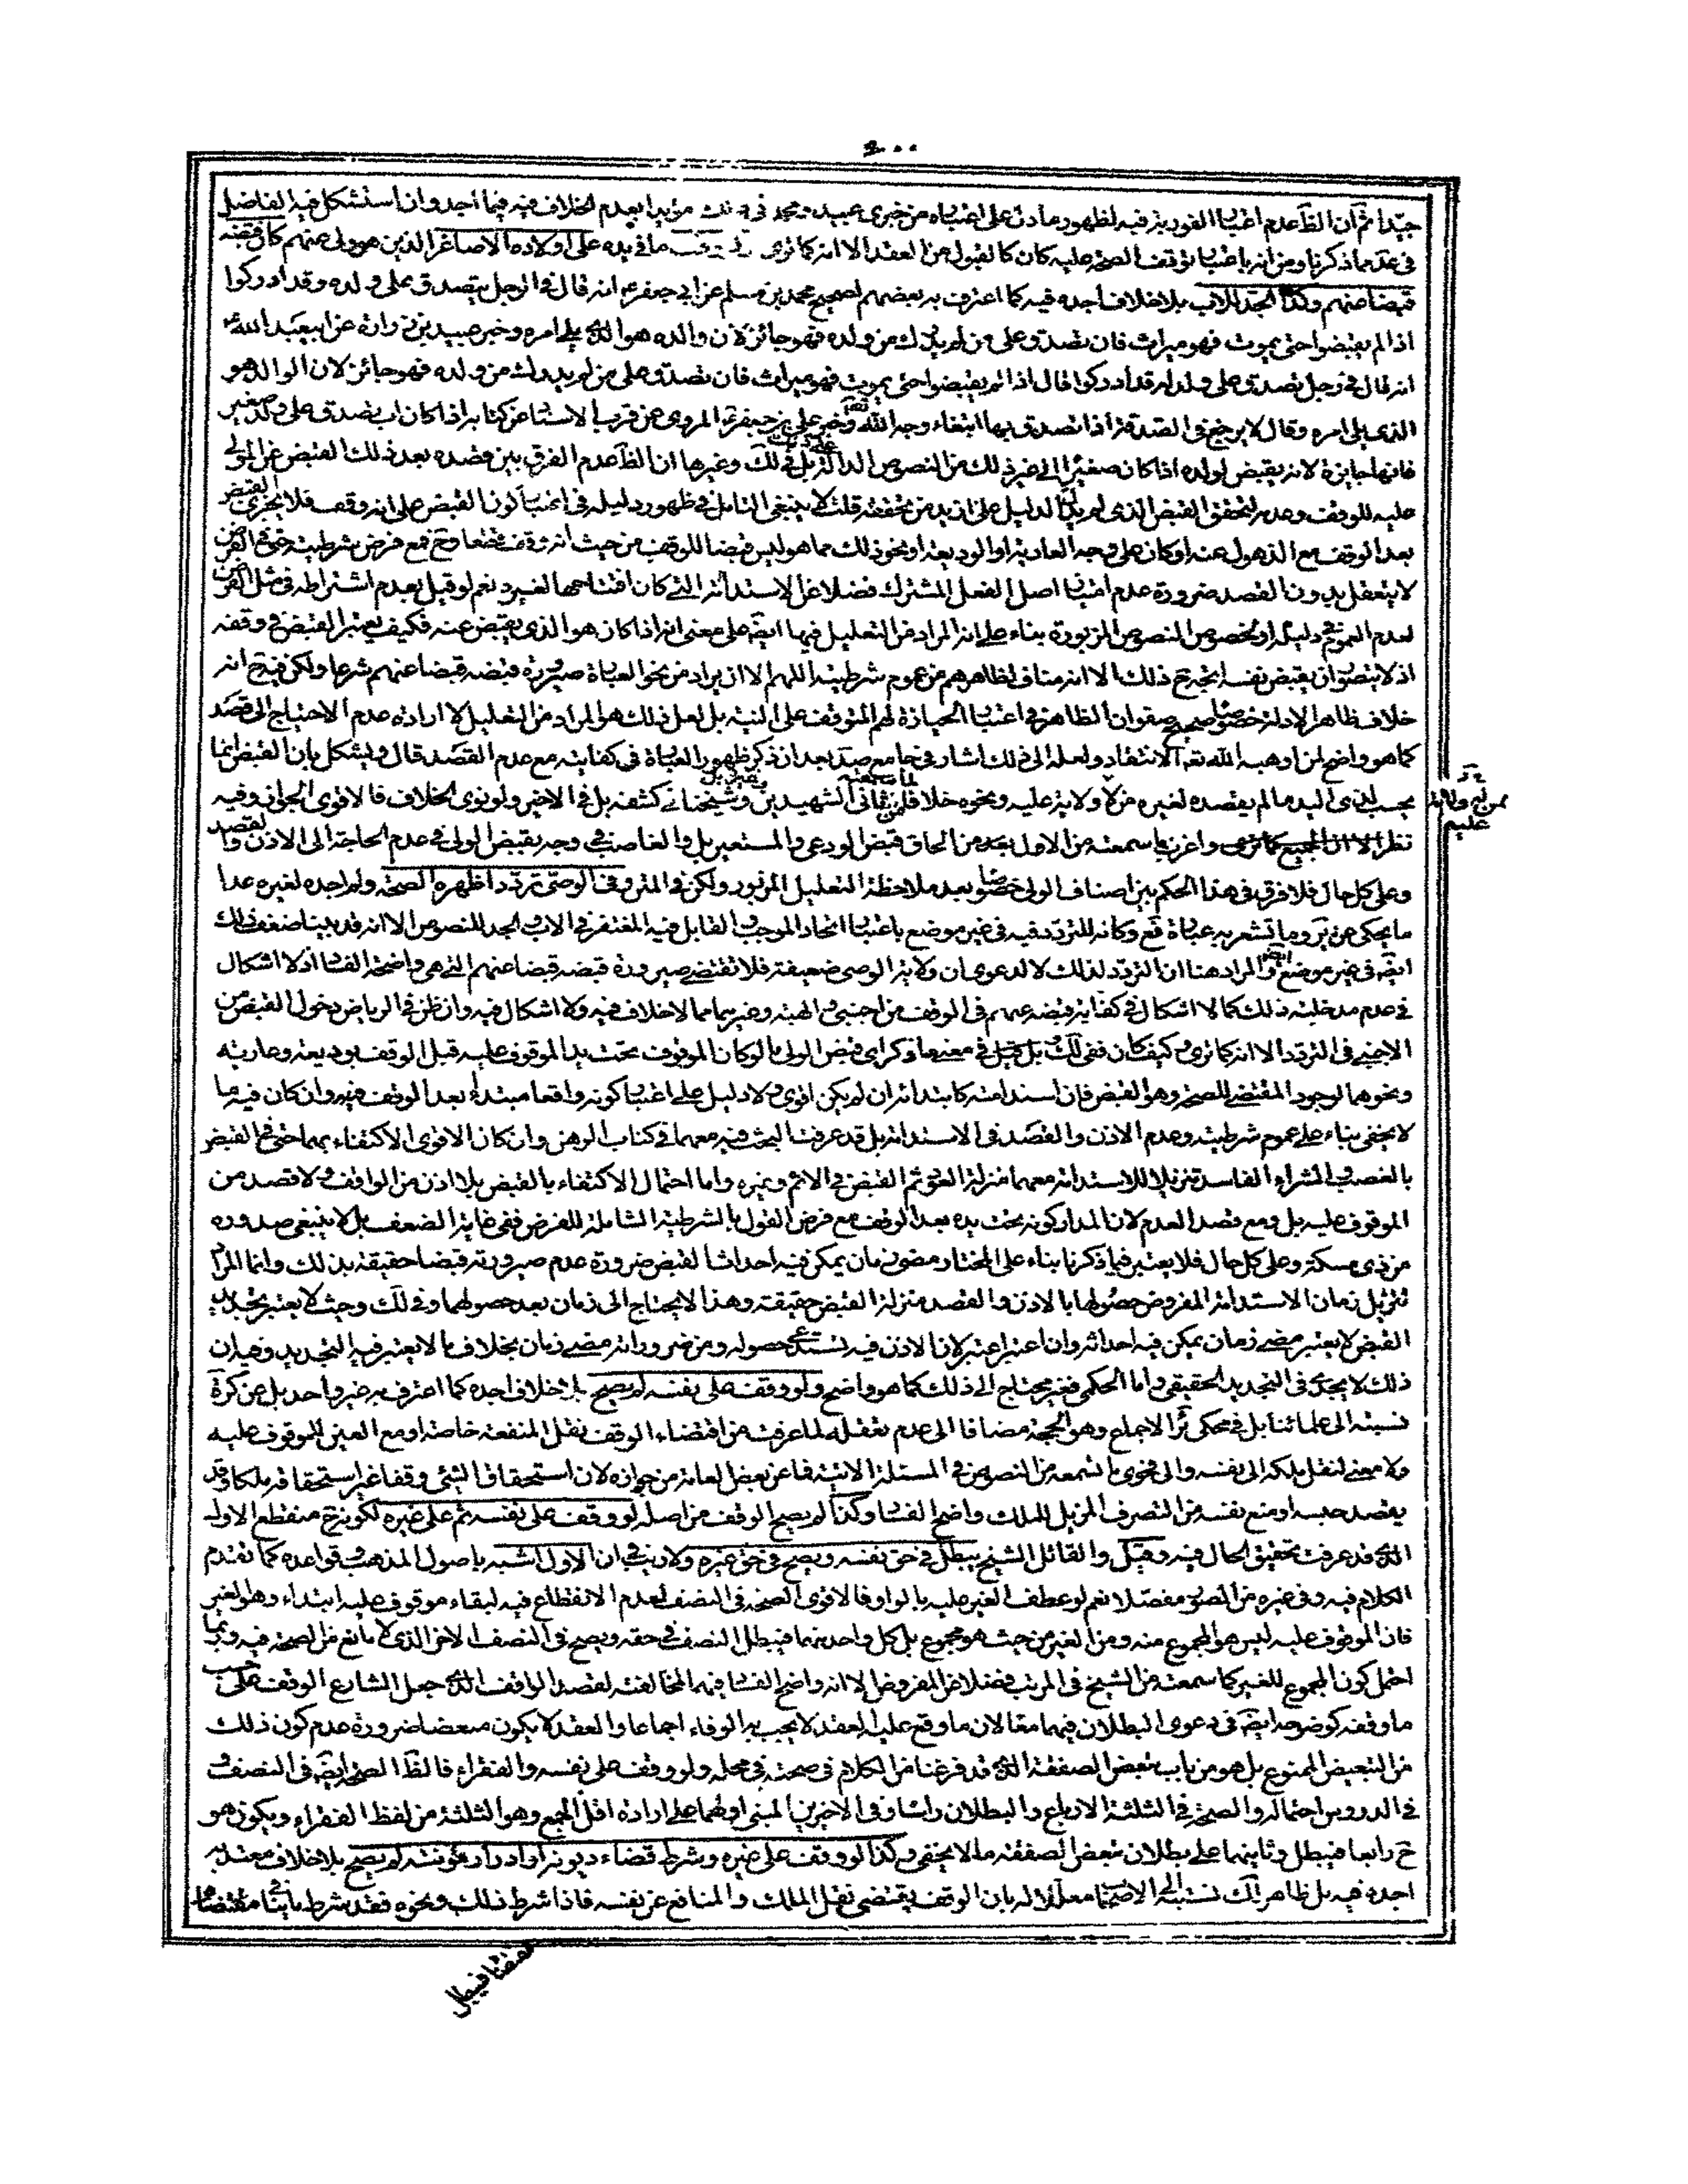 جيدا ثم ان الظ عدم اعتبار الفورية فيه لظهور ما دل على اعتباره من خبرى عبيد ومحمد فى ذلك مؤيدا بعدم الخلاف فيه فيما اجد وان استشكل فيه الفاضل
فى عد ما ذكرنا ومن انه باعتبار توقف الصحة عليه كان كالقبول من العقد الا انه كما ترى ما فى يده على اولاده الاصاغر الذين هو ولى عنهم كان قبضه
قبضا عنهم وكذا الجد للاب بلا خلاف اجده فيه كما اعترف به بعضهم لصحيح محمد بن مسلم عن ابى جعفر ع انه قال فى الرجل يتصدق على ولده وقد ادركوا
اذا لم يقبضوا حتى يموت فهو ميراث فان تصدق على من لم يدرك من ولده فهو جائز لان والده هو الذى يلى امره وخبر عبيد بن زرارة عن ابيعبد الله ع
انه قال فى رجل تصدق على ولد له قد ادركوا قال اذا لم يقبضوا حتى يموت فهو ميراث فان تصدق على من لم يدرك من ولده فهو جائز لان الوالد هو
الذى يلى امره وقال لا يرجع فى الصدقة اذا تصدق بها ابتغاء وجه الله وخبر على بن جعفر المروى عن قرب الاسناد عن كتابه اذا كان اب تصدق على ولد صغير
فانها جايزة لانه يقبض لولده اذا كان صغيرا الى غير ذلك من النصوص الدالة على ذلك وغيرها ان الظ عدم الفرق بين قصده بعد ذلك القبض عن المولى
عليه للوقف وعدمه لتحقق القبض الذى لم يدل الدليل على ازيد من تحققه قلت لا ينبغى التامل فى ظهور دليله فى اعتبار كون القبض على انه وقف فلا يجزى القبض
بعد الوقف مع الذهول عنه او كان على وجه العارية او الوديعة او نحو ذلك مما هو ليس قبضا للوقف من حيث انه وقف قطعا وح فمع فرض شرطيته حتى فى الفرض
لا يتعقل بدون القصد ضرورة عدم اعتبار اصل الفعل المشترك فضلا عن الاستدامة التى كان افتتاحها لغيره نعم لو قيل بعدم اشتراطه فى مثل الفرض
لعدم العموم فى دليله او لخصوص النصوص المزبورة بناء على انه المراد من التعليل فيها ايض على معنى انه اذا كان هو الذى يقبض عنه فكيف يعتبر القبض فى وقفه
اذ لا يتصور ان يقبض نفسه اتجه ح ذلك الا انه مناف لظاهرهم من عموم شرطيته اللهم الا ان يراد من نحو العبارة صيرورة قبضه قبضا عنهم شرعا ولكن فيه ح انه
خلاف ظاهر الادلة خصوصا صحيح صفوان الظاهر فى اعتبار الحيازة لهم المتوقف على النية بل لعل ذلك هو المراد من التعليل لا ارادة عدم الاحتياج الى قصد
كما هو واضح لمن وهبه الله تعه الانتقاد ولعله الى ذلك اشار فى جامع صد بعد ان ذكر ظهور العبارة فى كفايته مع عدم القصد قال ويشكل بان القبض انما
يحسب لذى اليد ما لم يقصده لغيره من له ولاية عليه ونحوه خلافا لما سمعته من ثانى الشهيدين وشيخنا فى كشفه بل فى الاخير ولو نوى الخلاف فالاقوى الجواز وفيه
ممن له ولاية
عليه
نظر الا ان الجميع كما ترى واغرب ما سمعته من الاول بعد من الحاق قبض الودعى والمستعير بل والغاصب فى وجه بقبض الولى فى عدم الحاجة الى الاذن والقصد
وعلى كل حال فلا فرق فى هذا الحكم بين اصناف الولى خصوصا بعد ملاحظة التعليل المزبور ولكن فى المتن وفى الوصى تردد اظهره الصحة ولم اجده لغيره عدا
ما يحكى عن ير وما تشعر به عبارة فع وكانه للتردد فيه فى غير موضع باعتبار اتحاد الموجب القابل فيه المغتفر فى الاب والجد للنصوص الا انه قد بينا ضعف ذلك
ايض فى غير موضع والمراد هنا ان التردد لذلك لا لدعوى ان ولاية الوصى ضعيفة فلا تقتضى صيرورة قبضه قبضا عنهم التى هى واضحة الفساد اذ لا اشكال
فى عدم مدخلية ذلك كما لا اشكال فى كفاية قبضه عنهم فى الوقف من اجنبى والهبة وغيرهما مما لا خلاف فيه ولا اشكال فيه وان ظن فى الرياض دخول القبض من
الاجنبى فى التردد الا انه كما ترى وكيف كان ففى لك بل قيل فى معنى ما ذكر اى قبض الولى ما لو كان الموقوف تحت يد الموقوف عليه قبل الوقف بوديعة وعارية
ونحوهما لوجود المقتضى للصحة وهو القبض فان استدامته كابتدائه ان لم يكن اقوى ولا دليل على اعتبار كونه واقعا مبتدأ بعد الوقف فيه وان كان فيه ما
لا يخفى بناء على عموم شرطيته وعدم الاذن والقصد فى الاستدامة بل قد عرفت البحث فيه معهما فى كتاب الرهن وان كان الاقوى الاكتفاء بهما حتى فى القبض
بالغصب والشراء الفاسد تنزيلا للاستدامة معهما منزلة القبض فى الاثم وغيره واما احتمال الاكتفاء بالقبض بلا اذن من الواقف ولا قصد من
الموقوف عليه بل ومع قصد العدم لان المدار كونه تحت يده بعد الوقف مع فرض القول بالشرطية الشاملة للفرض ففى غاية الضعف بل لا ينبغى صدوره
من ذى مسكة وعلى كل حال فلا يعتبر فيما ذكرنا بناء على المختار مضى زمان يمكن فيه احداث القبض ضرورة عدم صيرورته قبضا حقيقة بذلك وانما المراد
تنزيل زمان الاستدامة المفروض حصولها بالاذن والقصد منزلة القبض حقيقة وهذا لا يحتاج الى زمان بعد حصولهما وفى لك وحيث لا يعتبر تجديد
القبض لا يعتبر مضى زمان يمكن فيه احداثه وان اعتبر اعتبر لان الاذن فيه تستدعى حصوله ومن ضروراته مضى زمان بخلاف ما لا يعتبر فيه التجديد وفيه ان
ذلك لا يجدى فى التجديد الحقيقى واما الحكمى فغير محتاج الى ذلك كما هو واضح ولو وقف على نفسه لم يصح بلا خلاف اجده كما اعترف به غير واحد بل عن كرة
نسبته الى علمائنا بل فى محكى ئر الاجماع وهو الحجة مضافا الى عدم تعقله لما عرفت من اقتضاء الوقف نقل المنفعة خاصة او مع العين للموقوف عليه
ولا معنى لنقل ملكه الى نفسه والى فحوى ما تسمعه من النصوص فى المسئلة الاتية فما عن بعض العامة من جوازه لان استحقاق الشئ وقفا غير استحقاقه ملكا وقد
يقصد حبسه ومنع نفسه من التصرف المزيل للملك واضح الفساد وكذا لم يصح الوقف من اصله لو وقف على نفسه ثم على غيره لكونه ح منقطع الاول
الذى قد عرفت تحقيق الحال فيه وقيل والقائل الشيخ يبطل فى حق نفسه ويصح فى حق غيره ولا ريب فى ان الاول اشبه باصول المذهب وقواعده كما تقدم
الكلام فيه وفى غيره من الصور مفصلا نعم لو عطف الغير عليه بالواو فالاقوى الصحة فى النصف لعدم الانقطاع فيه لبقاء موقوف عليه ابتداء وهو الغير
فان الموقوف عليه ليس هو المجموع منه ومن الغير من حيث هو مجموع بل كل واحد منهما فيبطل النصف فى حقه ويصح فى النصف الاخر الذى لا مانع من الصحة فيه وربما
احتمل كون المجموع للغير كما سمعته من الشيخ فى المرتب فضلا عن المفروض الا انه واضح الفساد فيهما لمخالفته لقصد الواقف الذى جعل الشارع الوقف على حسب
ما وقفه كوضوحه ايض فى دعوى البطلان فيهما معا لان ما وقع عليه العقد لا يجب به الوفاء اجماعا والعقد لا يكون مبعضا ضرورة عدم كون ذلك
من التبعيض الممنوع بل هو من باب تبعض الصفقة الذى قد فرغنا من الكلام فى صحته فى محله ولو وقف على نفسه والفقراء فالظ الصحة ايض فى النصف و
فى الدروس احتماله والصحة فى الثلثة الارباع والبطلان راسا وفى الاخرين المبنى اولهما على ارادة اقل الجمع وهو الثلثة من لفظ الفقراء ويكون هو
ح رابعا فيبطل وثانيهما على بطلان تبعض الصفقة ما لا يخفى وكذا لو وقف على غيره وشرط قضاء ديونه او ادرار مؤنته لم يصح بلا خلاف معتد به
اجده فيه بل ظاهر لك نسبته الى الاصحاب معللا له بان الوقف يقتضى نقل الملك والمنافع عن نفسه فاذا شرط ذلك ونحوه فقد شرط ما ينافى مقتضاه